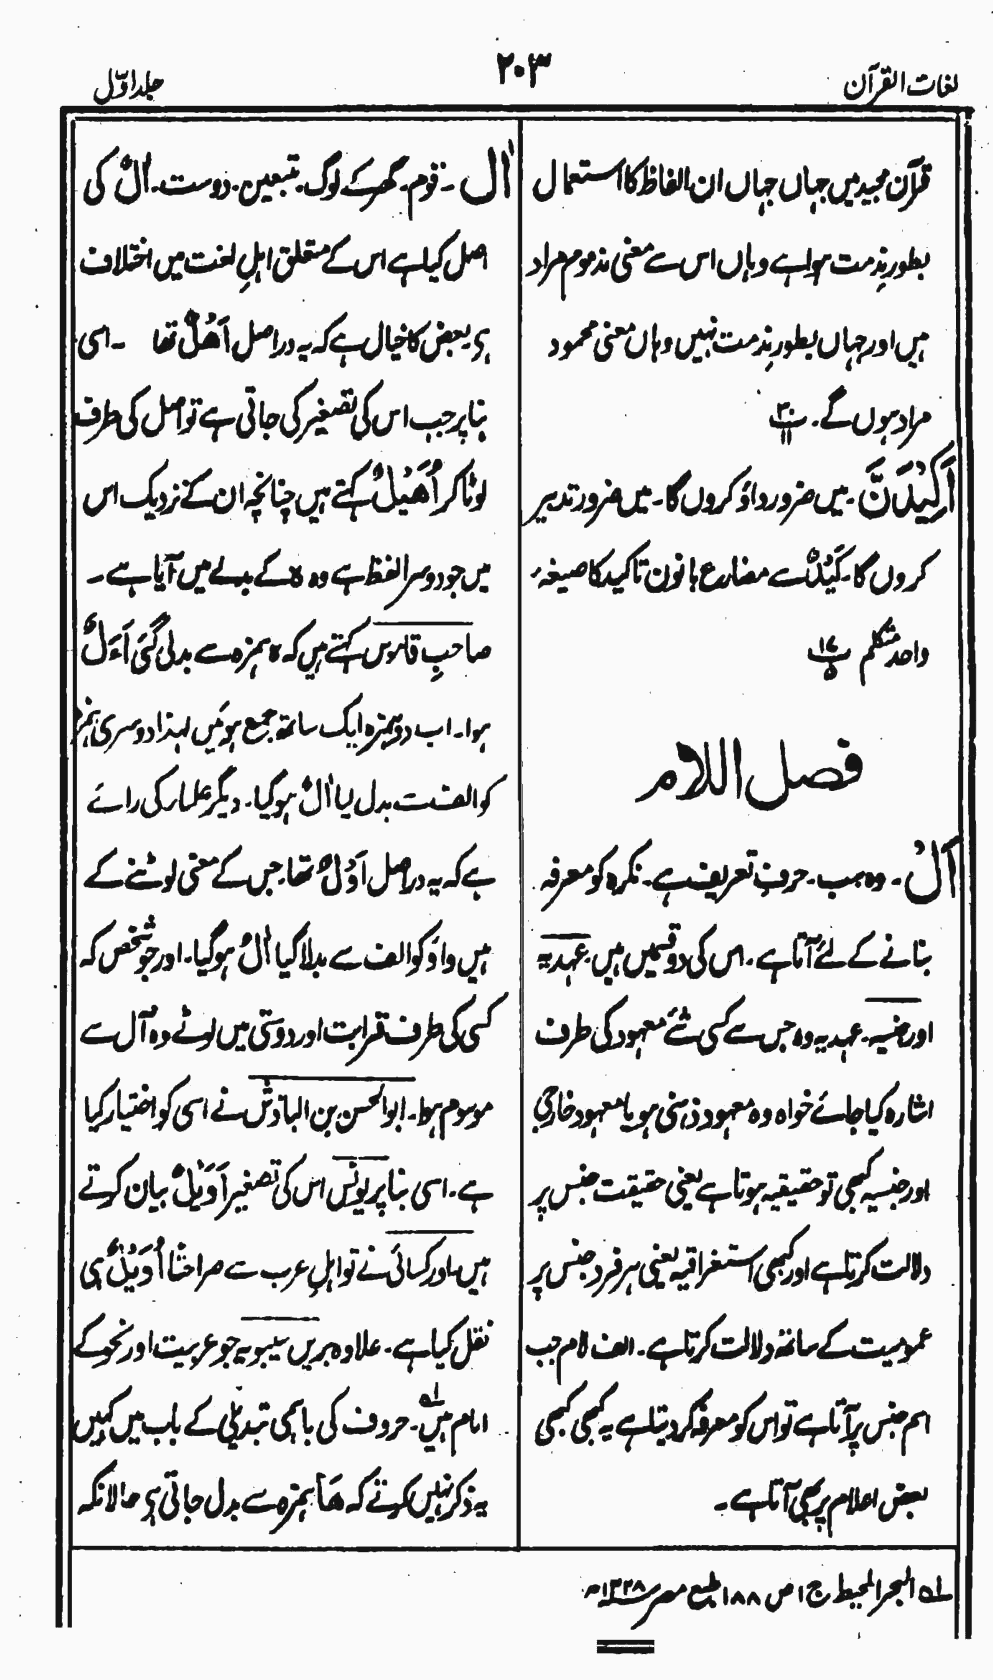 لغات القرآن
۲۰۳
جلد اوّل
قرآن مجید میں جہاں جہاں ان الفاظ کا استعمال
بطور مذمت ہوا ہے وہاں اس سے معنی مذموم مراد
ہیں اور جہاں بطور مذمت نہیں وہاں معنی محمود
مراد ہوں گے۔
اَکِیْدَنَّ۔ میں ضرور داؤ کروں گا۔ میں ضرور تدبیر
کروں گا۔ کَیْدٌ سے مضارع بانون تاکید کا صیغہ
واحد متکلم
فصل اللام
اَلْ۔ وہ، سب۔ حرفِ تعریف ہے۔ نکرہ کو معرفہ
بنانے کے لئے آتا ہے۔ اس کی دو قسمیں ہیں۔ عہدیہ
اور جنسیہ۔ عہدیہ وہ جس سے کسی شئے معہود کی طرف
اشارہ کیا جائے خواہ وہ معہود ذہنی ہو یا معہود خارجی
اور جنسیہ کبھی تو حقیقیہ ہوتا ہے یعنی حقیقت جنس پر
دلالت کرتا ہے اور کبھی استغراقیہ یعنی ہر فرد جنس پر
عمومیت کے ساتھ دلالت کرتا ہے۔ الف لام جب
اسم جنس پر آتا ہے تو اس کو معرفہ کر دیتا ہے یہ کبھی کبھی
بعض اعلام پر بھی آتا ہے۔
اٰل۔ قوم۔ گھر کے لوگ۔ متبعین۔ دوست۔ اٰلٌ کی
اصل کیا ہے اس کے متعلق اہلِ لغت میں اختلاف
ہی۔ بعض کا خیال ہے کہ یہ دراصل اَھْلٌ تھا ۔ اسی
بنا پر جب اس کی تصغیر کی جاتی ہے تو اصل کی طرف
لوٹا کر اُھَیْلٌ کہتے ہیں چنانچہ ان کے نزدیک اس
میں جو دوسرا لفظ ہے وہ ہ کے بدلے میں آیا ہے۔
صاحبِ قاموس کہتے ہیں کہ ہ ہمزہ سے بدلی گئی اَءَلٌ
ہوا۔ اب دو ہمزہ ایک ساتھ جمع ہوئیں لہذا دوسری ہمزہ
کو الف سے بدل لیا اٰلٌ ہو گیا۔ دیگر علماء کی رائے
ہے کہ یہ دراصل اَوَلٌ تھا۔ جس کے معنی لوٹنے کے
ہیں واؤ کو الف سے بدلا گیا اٰلٌ ہو گیا۔ اور جو شخص کہ
کسی کی طرف قرابت اور دوستی میں لوٹے وہ آل سے
موسوم ہوا۔ ابوالحسن بن الباذش نے اسی کو اختیار کیا
ہے۔ اسی بنا پر یونس اس کی تصغیر اُوَیْلٌ بیان کرتے
ہیں اور کسائی نے تو اہلِ عرب سے صراحتًا اُوَیْلٌ ہی
نقل کیا ہے۔ علاوہ بریں سیبویہ جو عربیت اور نحو کے
امام ہیں۔ حروف کی باہمی تبدیلی کے باب میں کہیں
یہ ذکر نہیں کرتے کہ ھَا ہمزہ سے بدل جاتی ہی حالانکہ
لہ البحر المحیط ج ۱ ص ۱۸۸ طبع مصر ۱۳۲۸ھ